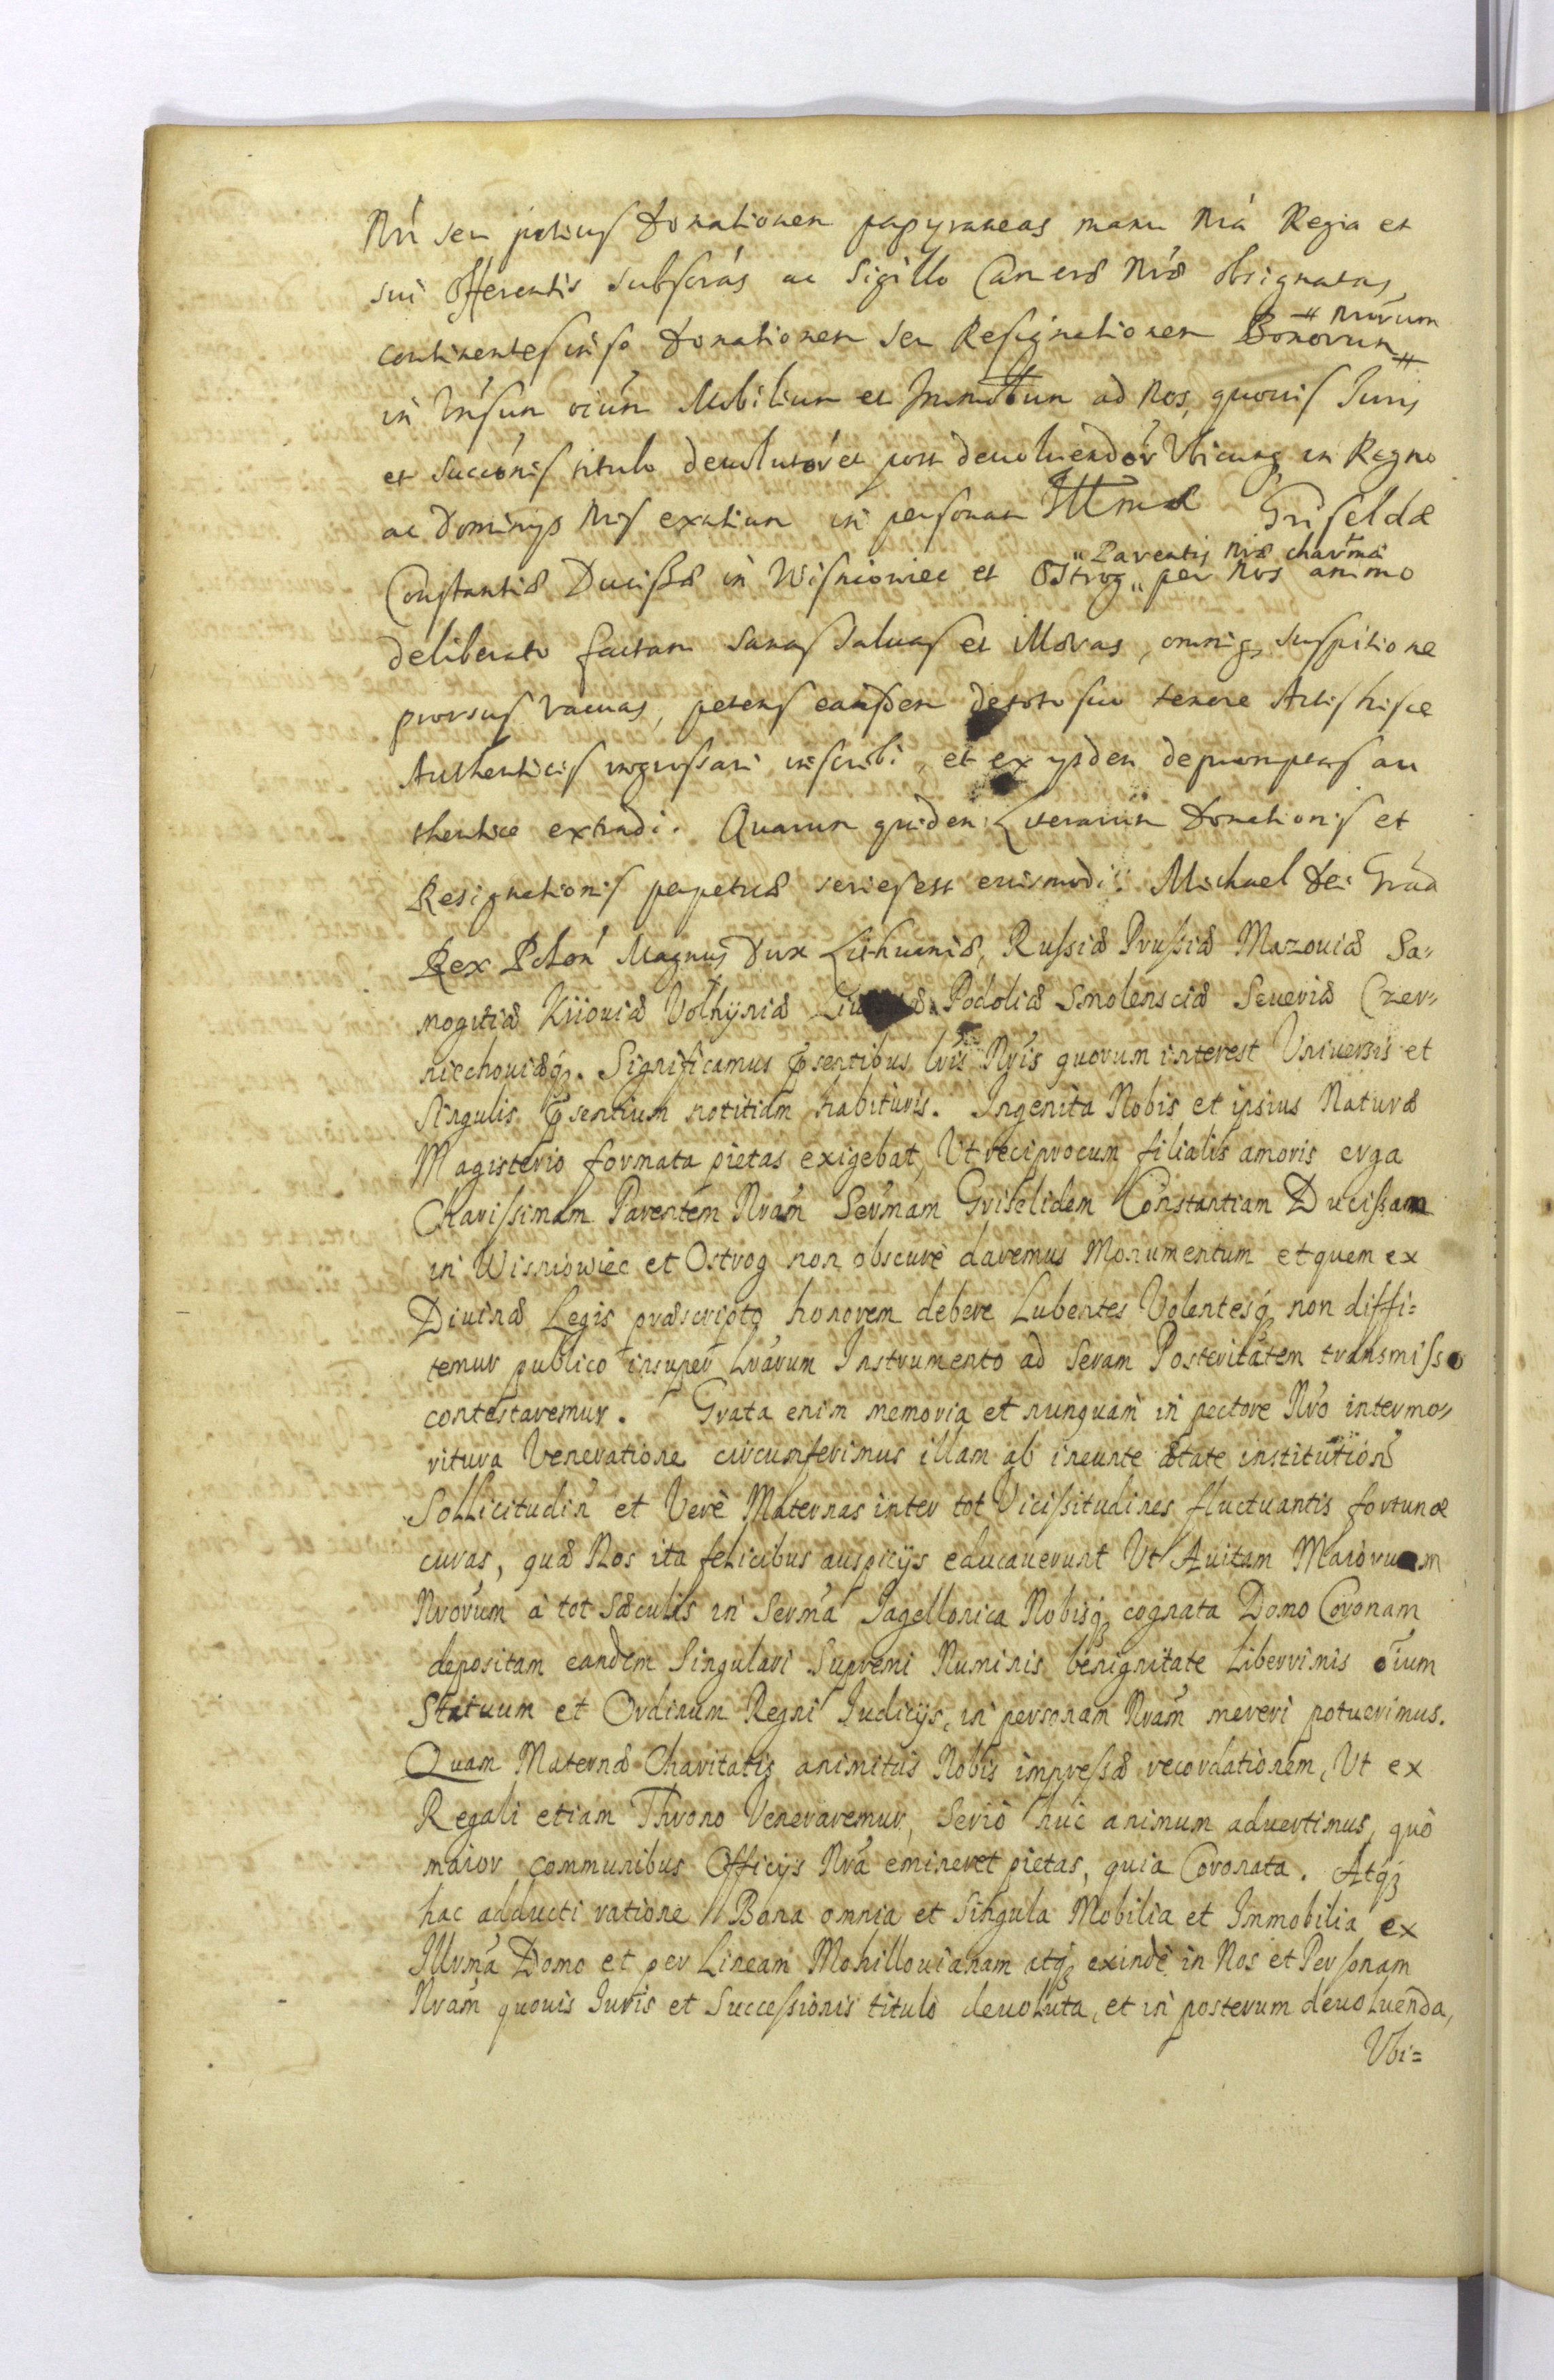 Nri seu potius Donationem papyraneas manu Nra Regia et
sui Offerentis subscras ac Sigillo Cancræ Nræ obsignatas,
continentes in se Donationem seu Resignationem Bonorum # Nrorum #
in Vnsum oium Mobilium et Immobium ad Nos, quovis Iuris
et Succionis titulo devolutor et post devoluendor Vbicunq in Regno
ac Dominijs Nris exatium in personam Illmæ Griseldæ
Constantiæ Ducissæ in Wisniowiec et Ostrog " Parentis Nræ charmæ " per Nos animo
deliberato factam sanas saluas et illæsas, omniq suspitione
prorsus vacuas, petens easdem de toto suo tenore Actis hisce
Authenticis ingrossari inscribi, et ex ijsdem depromptas au
thentice extradi. Quarum quidem Literarum Donationis et
Resignationis perpetuæ series est eiusmodi. Michael Dei Gratia
Rex Polon Magnus Dux Lithuaniæ, Russiæ Prussiæ Mazouiæ Sa-
mogitiæ Kijouiæ Volhyniæ Podoliæ Smolensciæ Seueriæ Czer-
niechouiæq. Significamus pñsentibus lris Nris quorum interest Vniuersis et
Singulis pñsentium notitiam habituris. Ingenita Nobis et ipsius Naturæ
Magisterio formata pietas exigebat, Vt reciprocum filialis amoris erga
Charissimam Parentem Nram Sermam Griselidem Constantiam Ducissam
in Wisniowiec et Ostrog non obscurè daremus Monumentum et quem ex
Diuinæ Legis præscripto honorem debere Lubentes Volentesq non diffi=
temur publico insuper Lrarum Instrumento ad Seram Posteritatem transmisso
contestaremur. Grata enim memoria et nunquam in pectore Nro intermo-
ritura Veneratione circumferimus illam ab ineunte ætate institution
Sollicitudin et Verè Maternas inter tot Vicissitudines fluctuantis fortunæ
curas, quæ Nos ita felicibus auspicijs educauerunt Vt Auitam Maiorum
Nrorum à tot Sæculis in Serma Jagellonica Nobisq cognata Domo Coronam
depositam eandem Singulari Supremi Numinis benignitate Liberrimis oium
Statuum et Ordinum Regni Iudicijs, in personam Nram mereri potuerimus.
Quam Maternæ Charitatis animitus Nobis impressæ recordationem, Vt ex
Regali etiam Throno Veneraremur, Seriò huc animum aduertimus, quò
maior communibus Officijs Nra emineret pietas, quia Coronata. Atq
hac adducti ratione Bona omnia et Singula Mobilia et Immobilia ex
Illrma Domo et per Lineam Mohillouianam atq exindè in Nos et Personam
Nram quouis Iuris et Successionis titulo deuoluta, et in posterum deuoluenda,
Vbi=